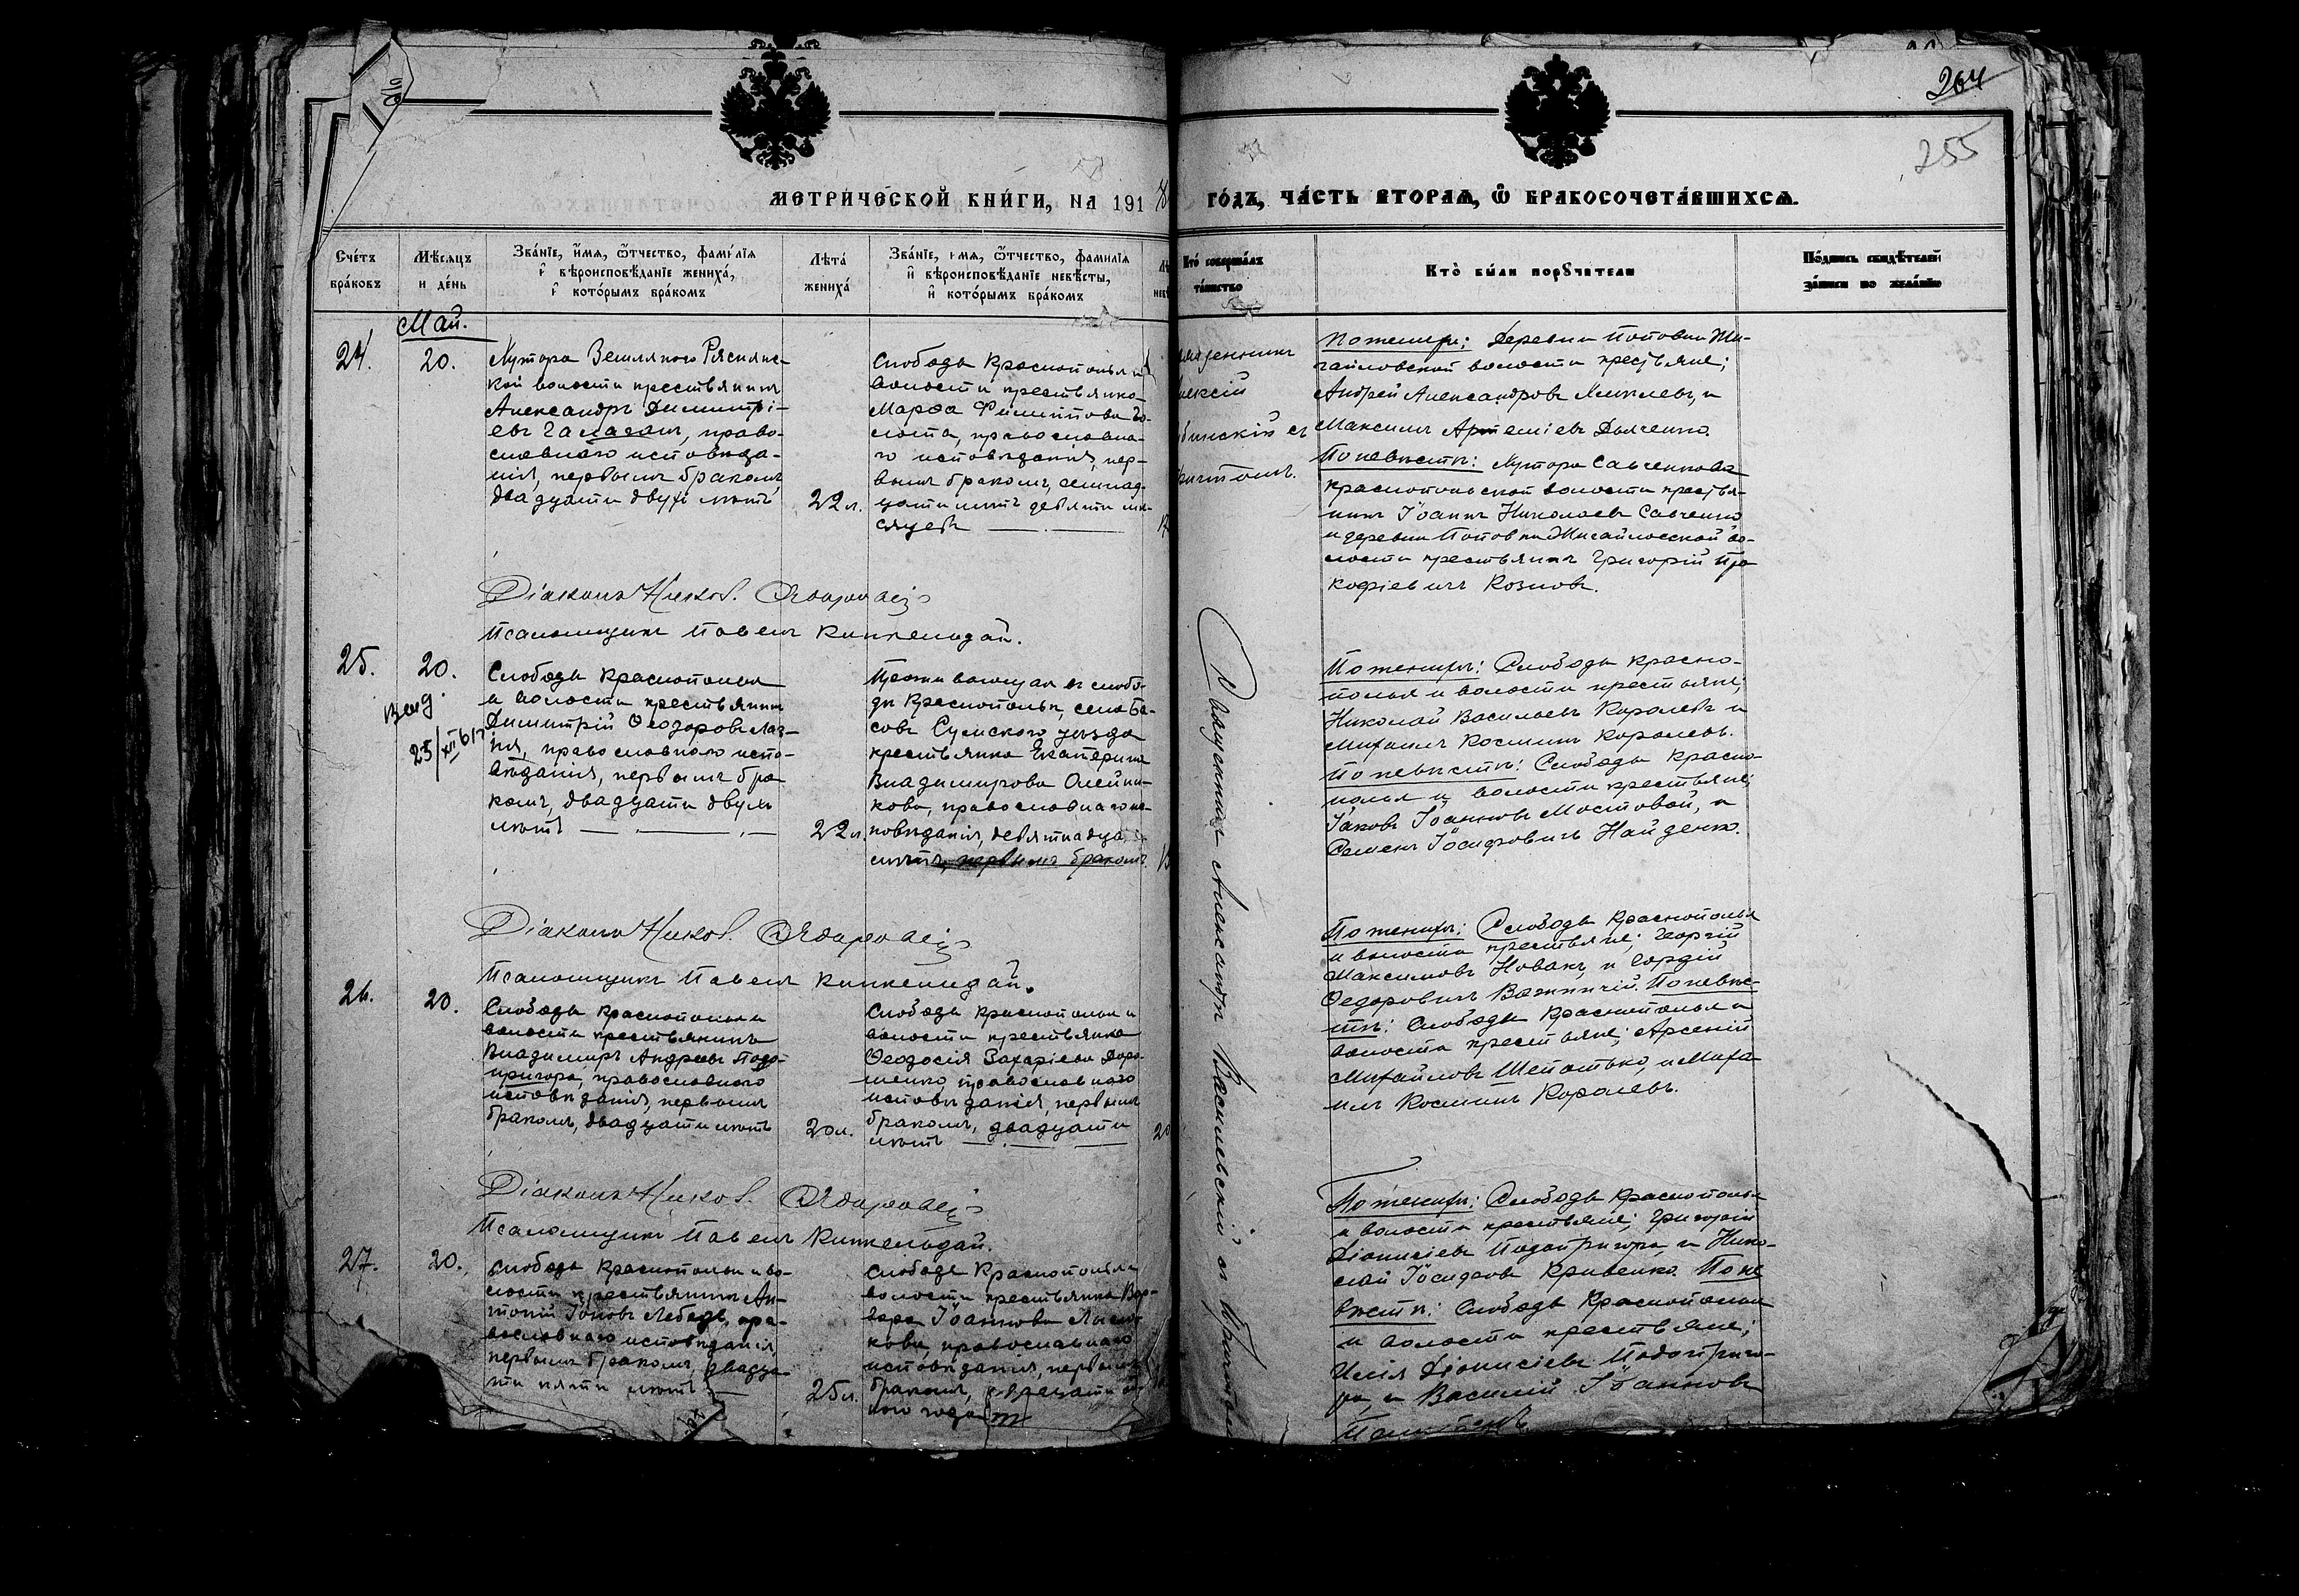 264
255
МЕТРИЧЕСКОЙ КНИГИ, НА 1918 ГОДЪ, ЧАСТЬ ВТОРАЯ, Ѿ БРАКОСОЧЕТАВШИХСЯ.
Счетъ браковъ
Мѣсяцъ и день
Званіе, имя, ѿтчество, фамилія
и вѣроисповѣданіе жениха,
и которымъ бракомъ
Лѣта жениха
Званіе, имя, ѿтчество, фамилія
и вѣроисповѣданіе невѣсты,
и которымъ бракомъ
Кто совершалъ таинство
Кто были поручители
Подпись свидѣтелей
записи по желанію
Май.
24.
20.
Хутора Земляного Ряснянс-
кой волости крестьянинъ
Александръ Димитрі-
евъ Галаганъ, право-
славнаго исповѣда-
нія, первымъ бракомъ,
двадцати двухъ лѣтъ
22 л.
Слободы Краснополья и
волости крестьянка
Марѳа Филиппова Зо-
лота, православна-
го исповѣданія, пер-
вымъ бракомъ, семнад-
цати лѣтъ девяти мѣ-
сяцевъ
По женихѣ: Деревни Поповки Ми-
хайловской волости крестьяне;
Андрей Александровъ Хмилевъ, и
Максимъ Артеміевъ Дьяченко.
По невѣстѣ: Хутора Савченкова
Краснопольской волости крестья-
нинъ Іоаннъ Николаевъ Савченко
и деревни Поповки Михайловской во-
лости крестьянинъ Григорій Про
кофіевичъ Козловъ.
Діаконъ Никол.
Псаломщикъ Павелъ
25.
20.
Слободы Краснополья
и волости крестьянинъ
Димитрій Ѳеодоровъ Лаз-
православнаго испо-
вѣданія, первымъ бра-
комъ, двадцати двухъ
лѣтъ
22 л.
Проживающая въ слобо-
дѣ Краснопольѣ, села Ба-
совъ Сумскаго уѣзда
крестьянка Екатерина
Владимирова Олейни-
кова, православнаго ис-
повѣданія, девятнадца
лѣтъ, первымъ бракомъ.
По женихѣ: Слободы Красно-
полья и волости крестьяне;
Николай Васильевъ Королевъ и
Михаилъ Косминъ Королевъ.
По невѣстѣ: Слободы Красно-
полья и волости крестьяне;
Іаковъ Іоанновъ Мостовой, и
Семенъ Іосифовичъ Найденко.
Діаконъ Никол.
Псаломщикъ Павелъ
Священникъ Александръ Васильевскій съ причтомъ
26.
20.
Слободы Краснополья и
волости крестьянинъ
Владимиръ Андреевъ Подо-
пригора, православнаго
исповѣданія, первымъ
бракомъ, двадцати лѣтъ
20 л.
Слободы Краснополья и
волости крестьянка
Ѳеодосія Захаріева Доро-
шенко, православнаго
исповѣданія, первымъ
бракомъ, двадцати
лѣтъ
20
По женихѣ: Слободы Краснополья
и волости крестьяне; Георгій
Максимовъ Новакъ, и Гордій
Ѳедоровичъ По невѣс-
тѣ: Слободы Краснополья и
волости крестьяне; Арсеній
Михайловъ Шепотько, и Миха-
илъ Косминъ Королевъ.
Діаконъ Никол.
Псаломщикъ Павелъ
27.
20.
Слободы Краснополья и во-
лости крестьянинъ Ан-
тоній Іоновъ Лебедь, пра-
вославнаго исповѣданія,
первымъ бракомъ, двадца-
ти пяти лѣтъ
25 л.
Слободы Краснополья и
волости крестьянка Вар-
вара Іоаннова
кова, православнаго
исповѣданія, первымъ
бракомъ,
ного года
По женихѣ: Слободы Краснополья
и волости крестьяне; Григорій
Діонисіевъ Подопригора, и Нико-
лай Іосифовъ Кривенко. По не
вѣстѣ: Слободы Краснополья
и волости крестьяне;
Илія Діонисіевъ Подоприго-
ра, и Василій Іоанновъ